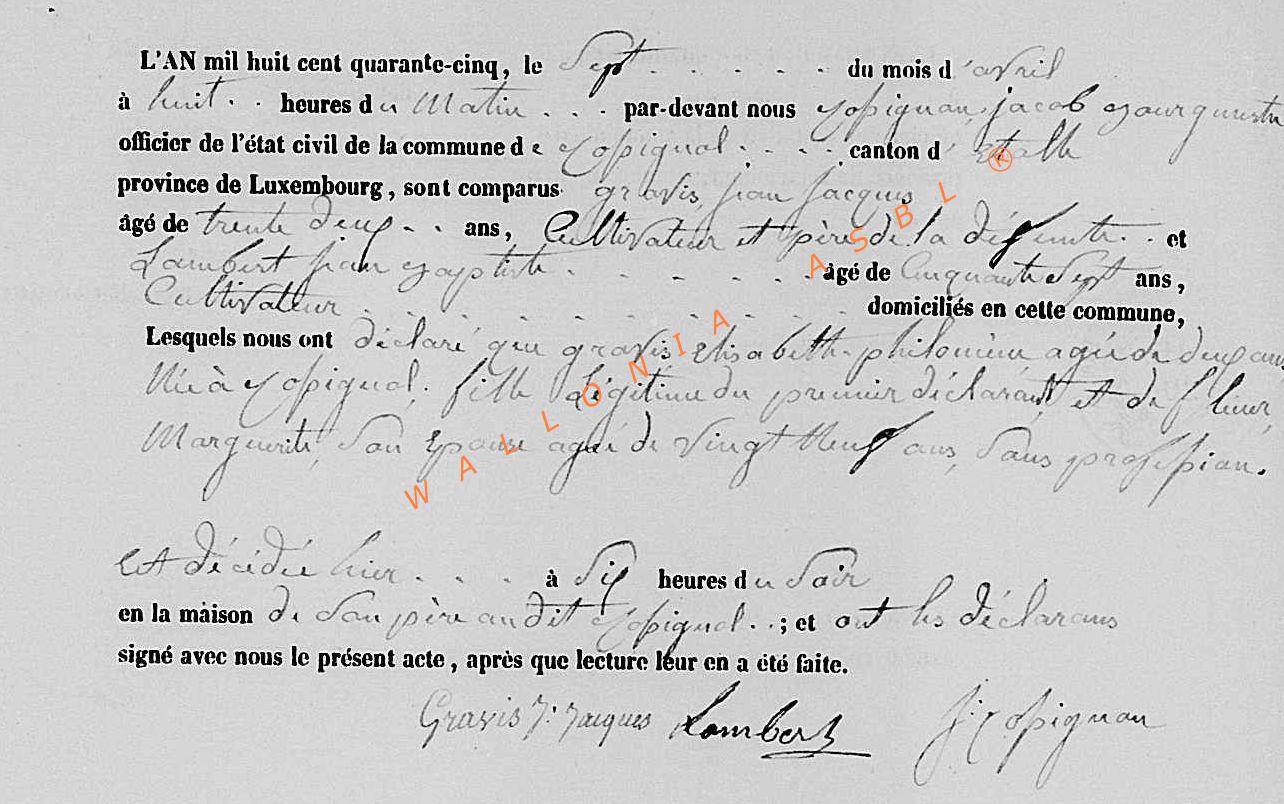 L'AN mil huit cent quarante-cinq, le Sept . . . . . du mois d'avril
à huit . . heures du Matin . . . par-devant nous jacob
officier de l'état civil de la commune de . . . . canton d'étalle
province de Luxembourg, sont comparus gravis, jean jacques
âgé de trente deux . . ans, Cultivateur et père de la défunte . . et
Lambert jean baptiste . . . . . . . âgé de Cinquante Sept ans,
Cultivateur . . . . . . . . . . domiciliés en cette commune,
Lesquels nous ont déclaré que gravis, Elisabeth philomène agée de deux ans
Née à fille Légitime du premier déclarant et de
Marguerite, Son Epouse agée de vingt Neuf ans, Sans profession.
Est décédée hier . . . à Six heures du Soir
en la maison de Son père audit . . ; et ont les déclarans
signé avec nous le présent acte, après que lecture leur en a été faite.
Gravis J: Jacques Lambert
WALLONIA ASBL ®